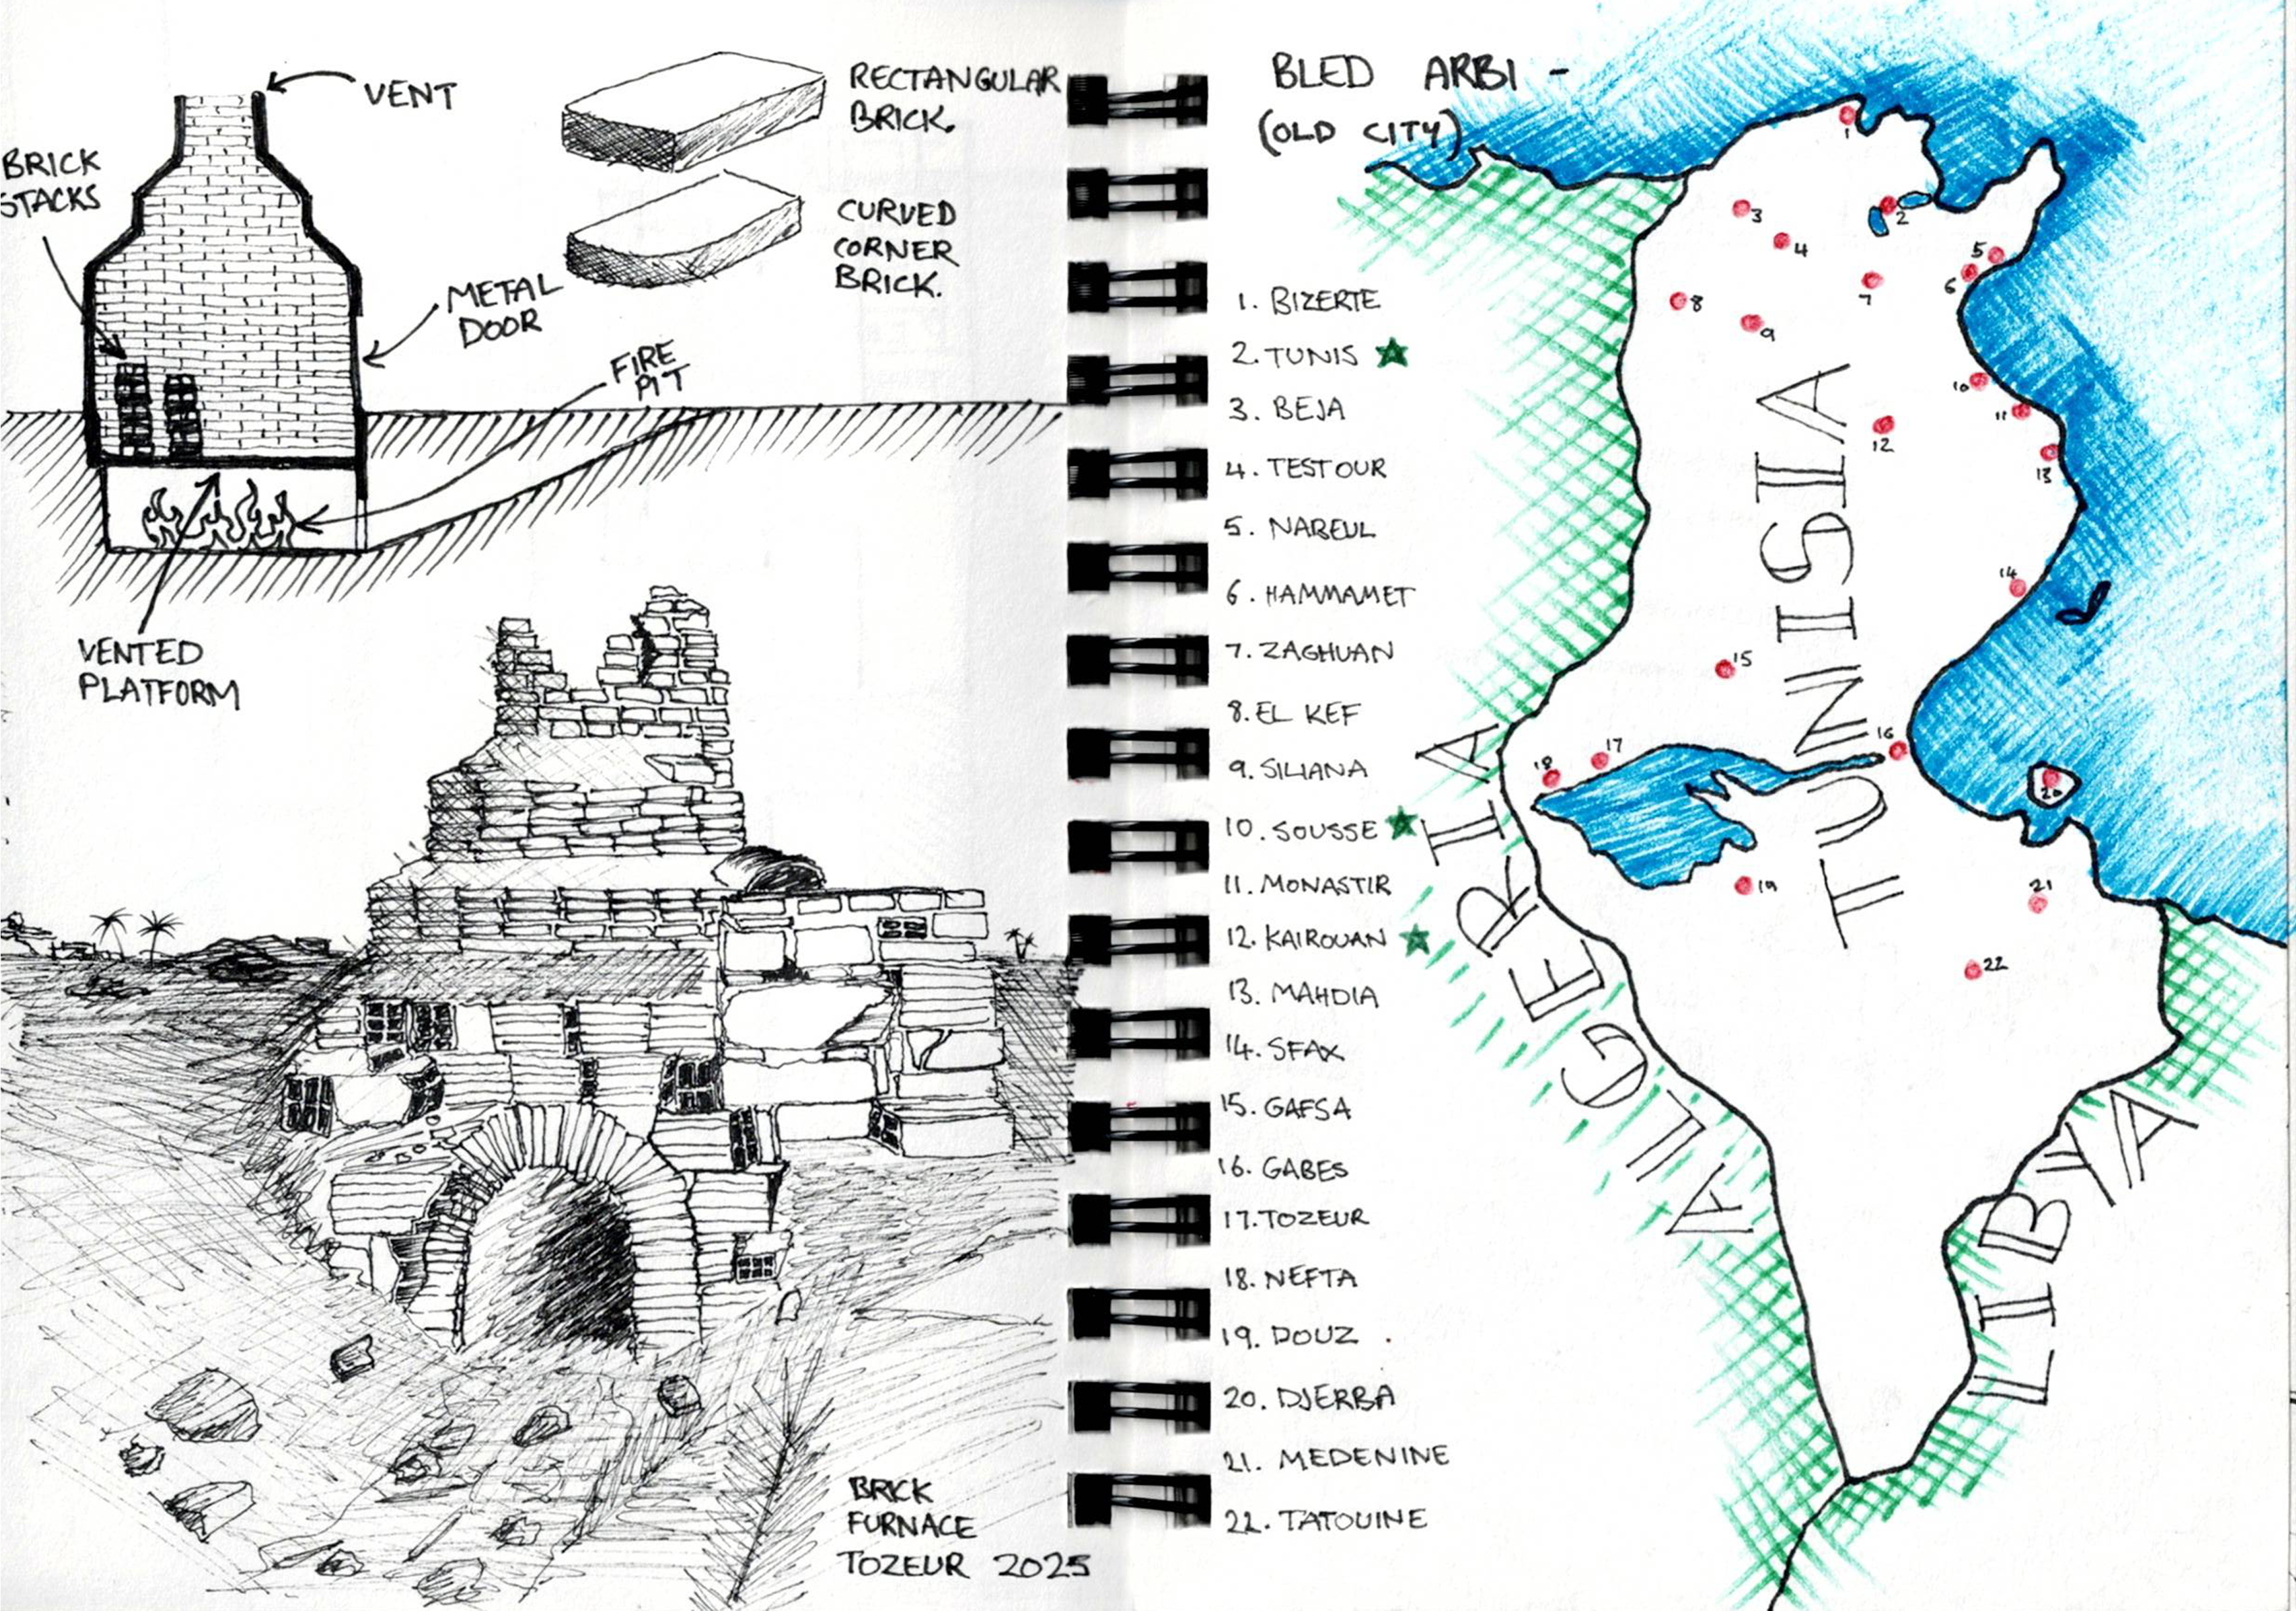 VENT
BRICK
STACKS
RECTANGULAR
BRICK.
CURVED
CORNER
BRICK.
METAL
DOOR
FIRE
PIT
VENTED
PLATFORM
BRICK
FURNACE
TOZEUR 2025
BLED ARBI -
(OLD CITY)
1. BIZERTE
2. TUNIS
3. BEJA
4. TESTOUR
5. NABEUL
6. HAMMAMET
7. ZAGHUAN
8. EL KEF
9. SILIANA
10. SOUSSE
11. MONASTIR
12. KAIROUAN
13. MAHDIA
14. SFAX
15. GAFSA
16. GABES
17. TOZEUR
18. NEFTA
19. DOUZ
20. DJERBA
21. MEDENINE
22. TATOUINE
1
2
3
4
5
6
7
8
9
10
11
12
13
14
15
16
17
18
19
20
21
22
TUNISIA
ALGERIA
LIBYA